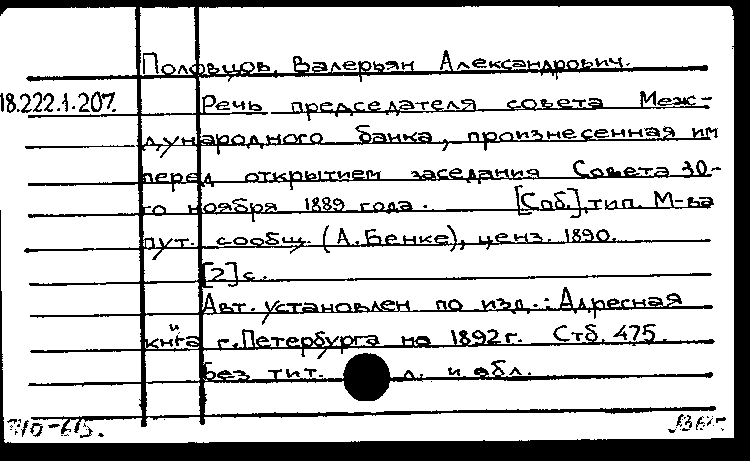 Половцов, Валерьян Александрович.
18.222.1.207. Речь председателя совета Меж-
дународного банка, произнесенная им
перед открытием заседания Совета 30-
го ноября 1889 года. [Спб.], тип. М-ва
пут. сообщ. (А.Бенке), ценз. 1890.
[2] с.
Авт. установлен по изд.: Адресная
книга г. Петербурга на 1892 г. Стб. 475.
Без тит. л. и обл.